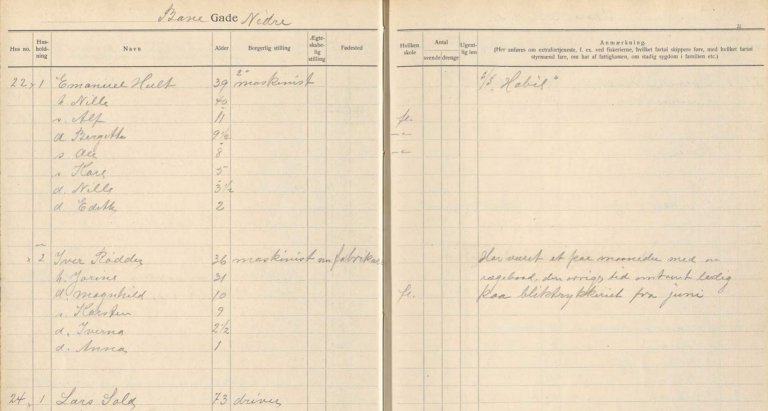 Bane Gade Nedre
Hus no. Hus-hold-ning Navn Alder Borgerlig stilling Ægte-skabe-lig stilling Fødested Hvilken skole Antal svende drenge Ugent-lig løn Anmærkning.
(Her anføres om extrafortjeneste, f. ex. ved fiskerierne, hvilket fartøi skippere føre, med hvilket fartøi
styrmænd fare, om har af fattigkassen, om stadig sygdom i familien etc.)
22 x 1 Emanuel Hult 39 2' maskinist S/S. "Habil"
h. Nille 40
s. Alf 11 fl.
d. Bergitte 9½ -"-
s. 8 -"-
s. Kåre 5
d. Nille 3½
d. Edith 2
x 2 Iver Rødder 36 maskinist nu fabrik Har været et par maaneder med en
h. Jorine 31 øvrige tid omtrent ledig
d. Magnhild 10 fl. paa bliktrykkeriet fra juni
s. Karsten 9
d. Iverna 2½
d. Anna 1
24 1 Lars Sold 73 driver